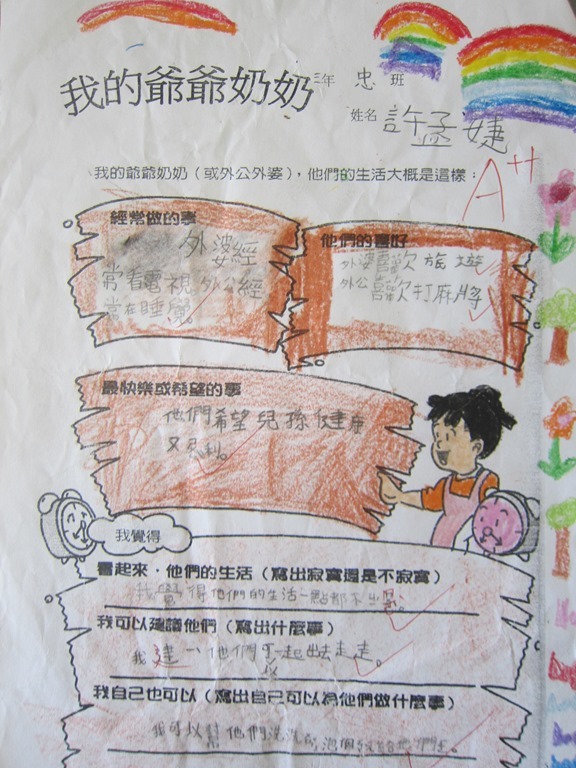 我的爺爺奶奶 三年 忠 班
姓名 許孟婕
我的爺爺奶奶（或外公外婆），他們的生活大概是這樣：
A++
經常做的事
外婆經
常看電視 外公經
常在睡覺。
他們的喜好
外婆喜歡旅遊
外公喜歡打麻將
最快樂或希望的事
他們希望兒孫健康
又
我覺得
看起來，他們的生活（寫出寂寞還是不寂寞）
我覺得他們的生活一點都不
我可以建議他們（寫出什麼事）
我建 他們可以一起出去走走。
我自己也可以（寫出自己可以為他們做什麼事）
我可以幫他們洗洗